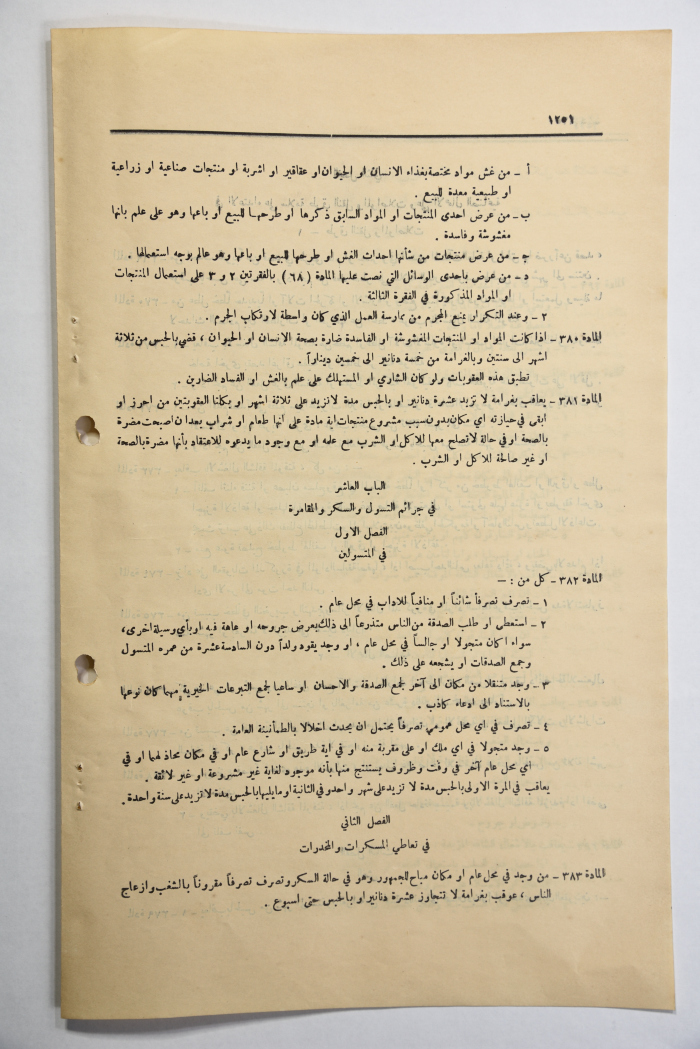 ١٢٥١
أ – من غش مواد مختصة بغذاء الانسان او الحيوان او عقاقير او اشربة او منتجات صناعية او زراعية
او طبيعية معدة للبيع .
ب – من عرض احدى المنتجات او المواد السابق ذكرها او طرحها للبيع أو باعها وهو على علم بانها
مغشوشة وفاسدة .
جـ – من عرض منتجات من شأنها احداث الغش او طرحها للبيع او باعها وهو عالم بوجه استعمالها .
د – من عرض باحدى الوسائل التي نصت عليها المادة ( ٦٨ ) بالفقرتين ٢ و ٣ على استعمال المنتجات
او المواد المذكورة في الفقرة الثالثة .
٢ – وعند التكرار يمنع المجرم من ممارسة العمل الذي كان واسطة لارتكاب الجرم .
المادة ٣٨٠ – اذا كانت المواد او المنتجات المغشوشة او الفاسدة ضارة بصحة الانسان او الحيوان ، قضي بالحبس من ثلاثة
اشهر الى سنتين وبالغرامة من خمسة دنانير الى خمسين ديناراً .
تطبق هذه العقوبات ولو كان الشاري او المستهلك على علم بالغش او الفساد الضارين .
المادة ٣٨١ – يعاقب بغرامة لا تزيد عشرة دنانير او بالحبس مدة لا تزيد على ثلاثة اشهر او بكلتا العقوبتين من احرز او
ابقى في حيازته اي مكان بدون سبب مشروع منتجات اية مادة على انها طعام او شراب بعد ان اصبحت مضرة
بالصحة او في حالة لا تصلح معها للاكل او الشرب مع علمه او مع وجود ما يدعوه للاعتقاد بأنها مضرة بالصحة
او غير صالحة للاكل او الشرب .
الباب العاشر
في جرائم التسول والسكر والمقامرة
الفصل الاول
في المتسولين
المادة ٣٨٢ – كل من : –
١ – تصرف تصرفاً شائناً او منافياً للاداب في محل عام .
٢ – استعطى او طلب الصدقة من الناس متذرعاً الى ذلك بعرض جروحه او عاهة فيه او بأي وسيلة اخرى ،
سواء اكان متجولا او جالساً في محل عام ، او وجد يقود ولداً دون السادسة عشرة من عمره للتسول
وجمع الصدقات او يشجعه على ذلك .
٣ – وجد متنقلا من مكان الى آخر لجمع الصدقة والاحسان او ساعيا لجمع التبرعات الخيرية مهما كان نوعها
بالاستناد الى ادعاء كاذب .
٤ – تصرف في اي محل عمومي تصرفاً يحتمل ان يحدث اخلالا بالطمأنينة العامة .
٥ – وجد متجولا في اي ملك او على مقربة منه او في اية طريق او شارع عام او في مكان محاذ لهما او في
اي محل عام آخر في وقت وظروف يستنتج منها بأنه موجود لغاية غير مشروعة او غير لائقة .
يعاقب في المرة الاولى بالحبس مدة لا تزيد على شهر واحد وفي الثانية او ما يليها بالحبس مدة لا تزيد على سنة واحدة .
الفصل الثاني
في تعاطي المسكرات والمخدرات
المادة ٣٨٣ – من وجد في محل عام او مكان مباح للجمهور وهو في حالة السكر وتصرف تصرفاً مقروناً بالشغب وازعاج
الناس ، عوقب بغرامة لا تتجاوز عشرة دنانير او بالحبس حتى اسبوع .